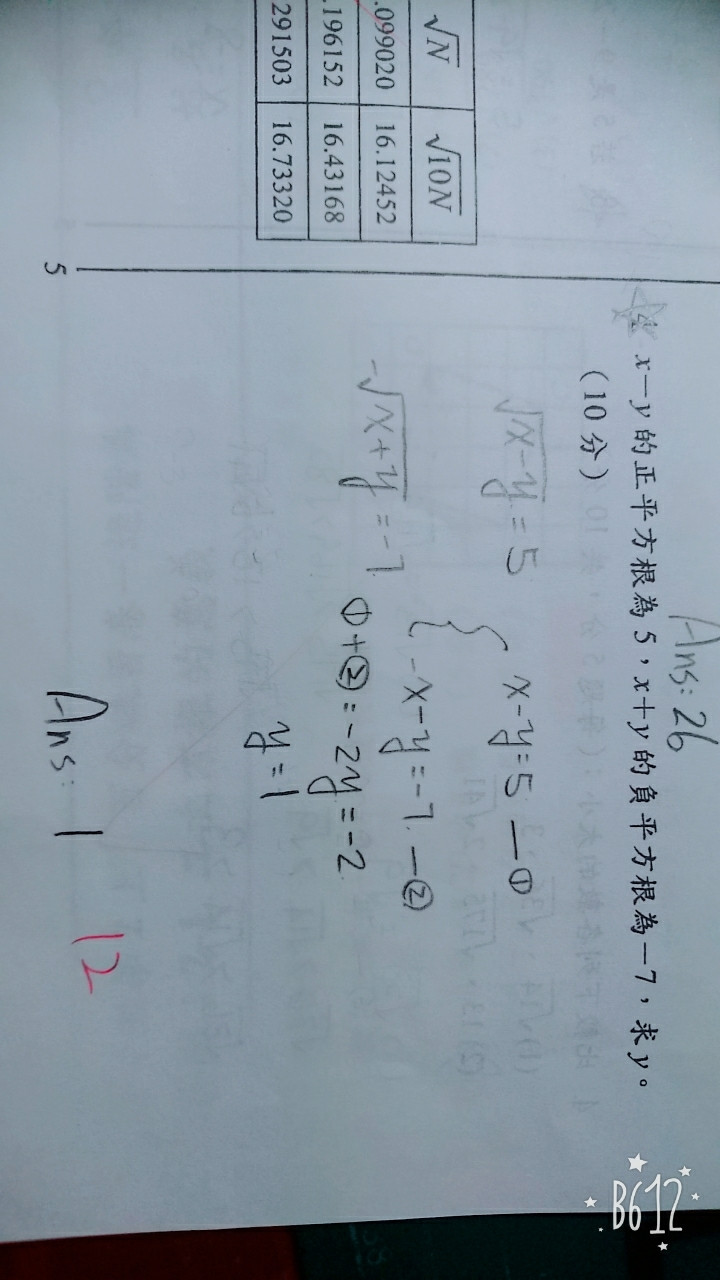 √N √10N
.099020 16.12452
.196152 16.43168
.291503 16.73320
5
Ans: 26
4. x－y 的正平方根為 5，x＋y 的負平方根為－7，求 y。
（10 分）
√x-y = 5
-√x+y = -7
{ x-y=5 —①
-x-y=-7. —②
①+②:-2y=-2
y=1
Ans: 1
12
B612